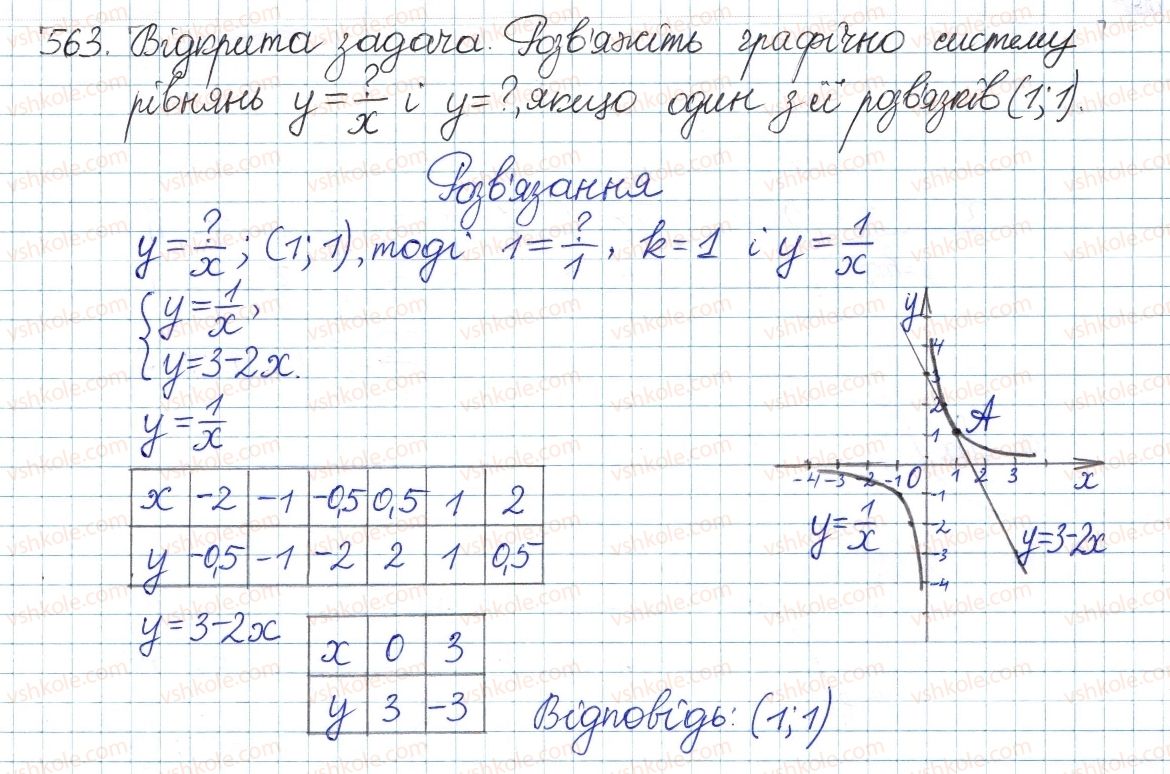 563. Відкрита задача. Розв'яжіть графічно систему
рівнянь y=?/x і y=?, якщо один з її розв'язків (1;1).
Розв'язання
y=?/x; (1;1), тоді 1=?/1, k=1 і y=1/x
{y=1/x,
y=3-2x.
y=1/x
x -2 -1 -0,5 0,5 1 2
y -0,5 -1 -2 2 1 0,5
y=3-2x
x 0 3
y 3 -3
Відповідь: (1;1)
y
4
3
2
1
A
-4 -3 -2 -1 0 1 2 3 x
-1
-2
-3
-4
y=1/x
y=3-2x
vshkole.com